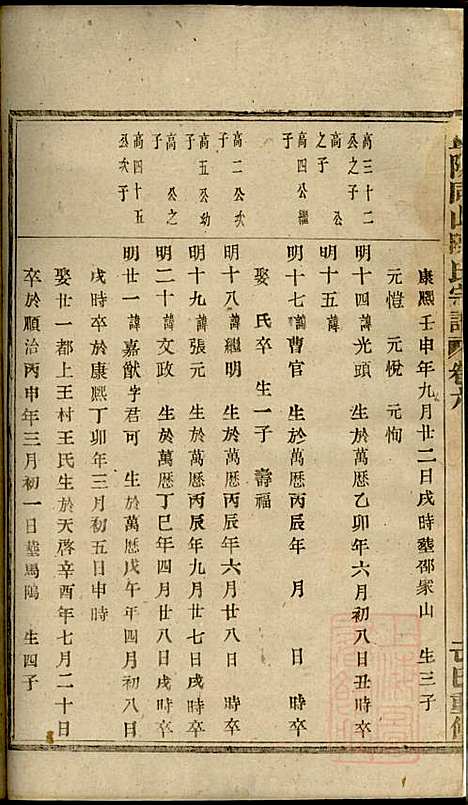 康熙壬申年九月廿二日戌時塟邵家山 生三子
元愷 元悅 元恂
高三十二公之子
明十四諱光頭 生於萬曆乙卯年六月初八日丑時卒
高 公之子
明十五諱
高四公繼子
明十七諱曹官 生於萬曆丙辰年 月 日 時卒
娶 氏卒 生一子 壽福
高二公次子
明十八諱繼明 生於萬曆丙辰年六月廿八日 時卒
高五公幼子
明十九諱張元 生於萬曆丙辰年九月廿七日戌時卒
高 公之子
明二十諱文政 生於萬曆丁巳年四月廿八日戌時卒
高四十五公次子
明廿一諱嘉猷字君可 生於萬曆戊午年四月初八日
戌時卒於康熙丁卯年三月初五日申時
娶廿一都上王村王氏生於天啓辛酉年七月二十日
卒於順治丙申年三月初一日塟馬鴻 生四子
氏宗譜 卷六
重修